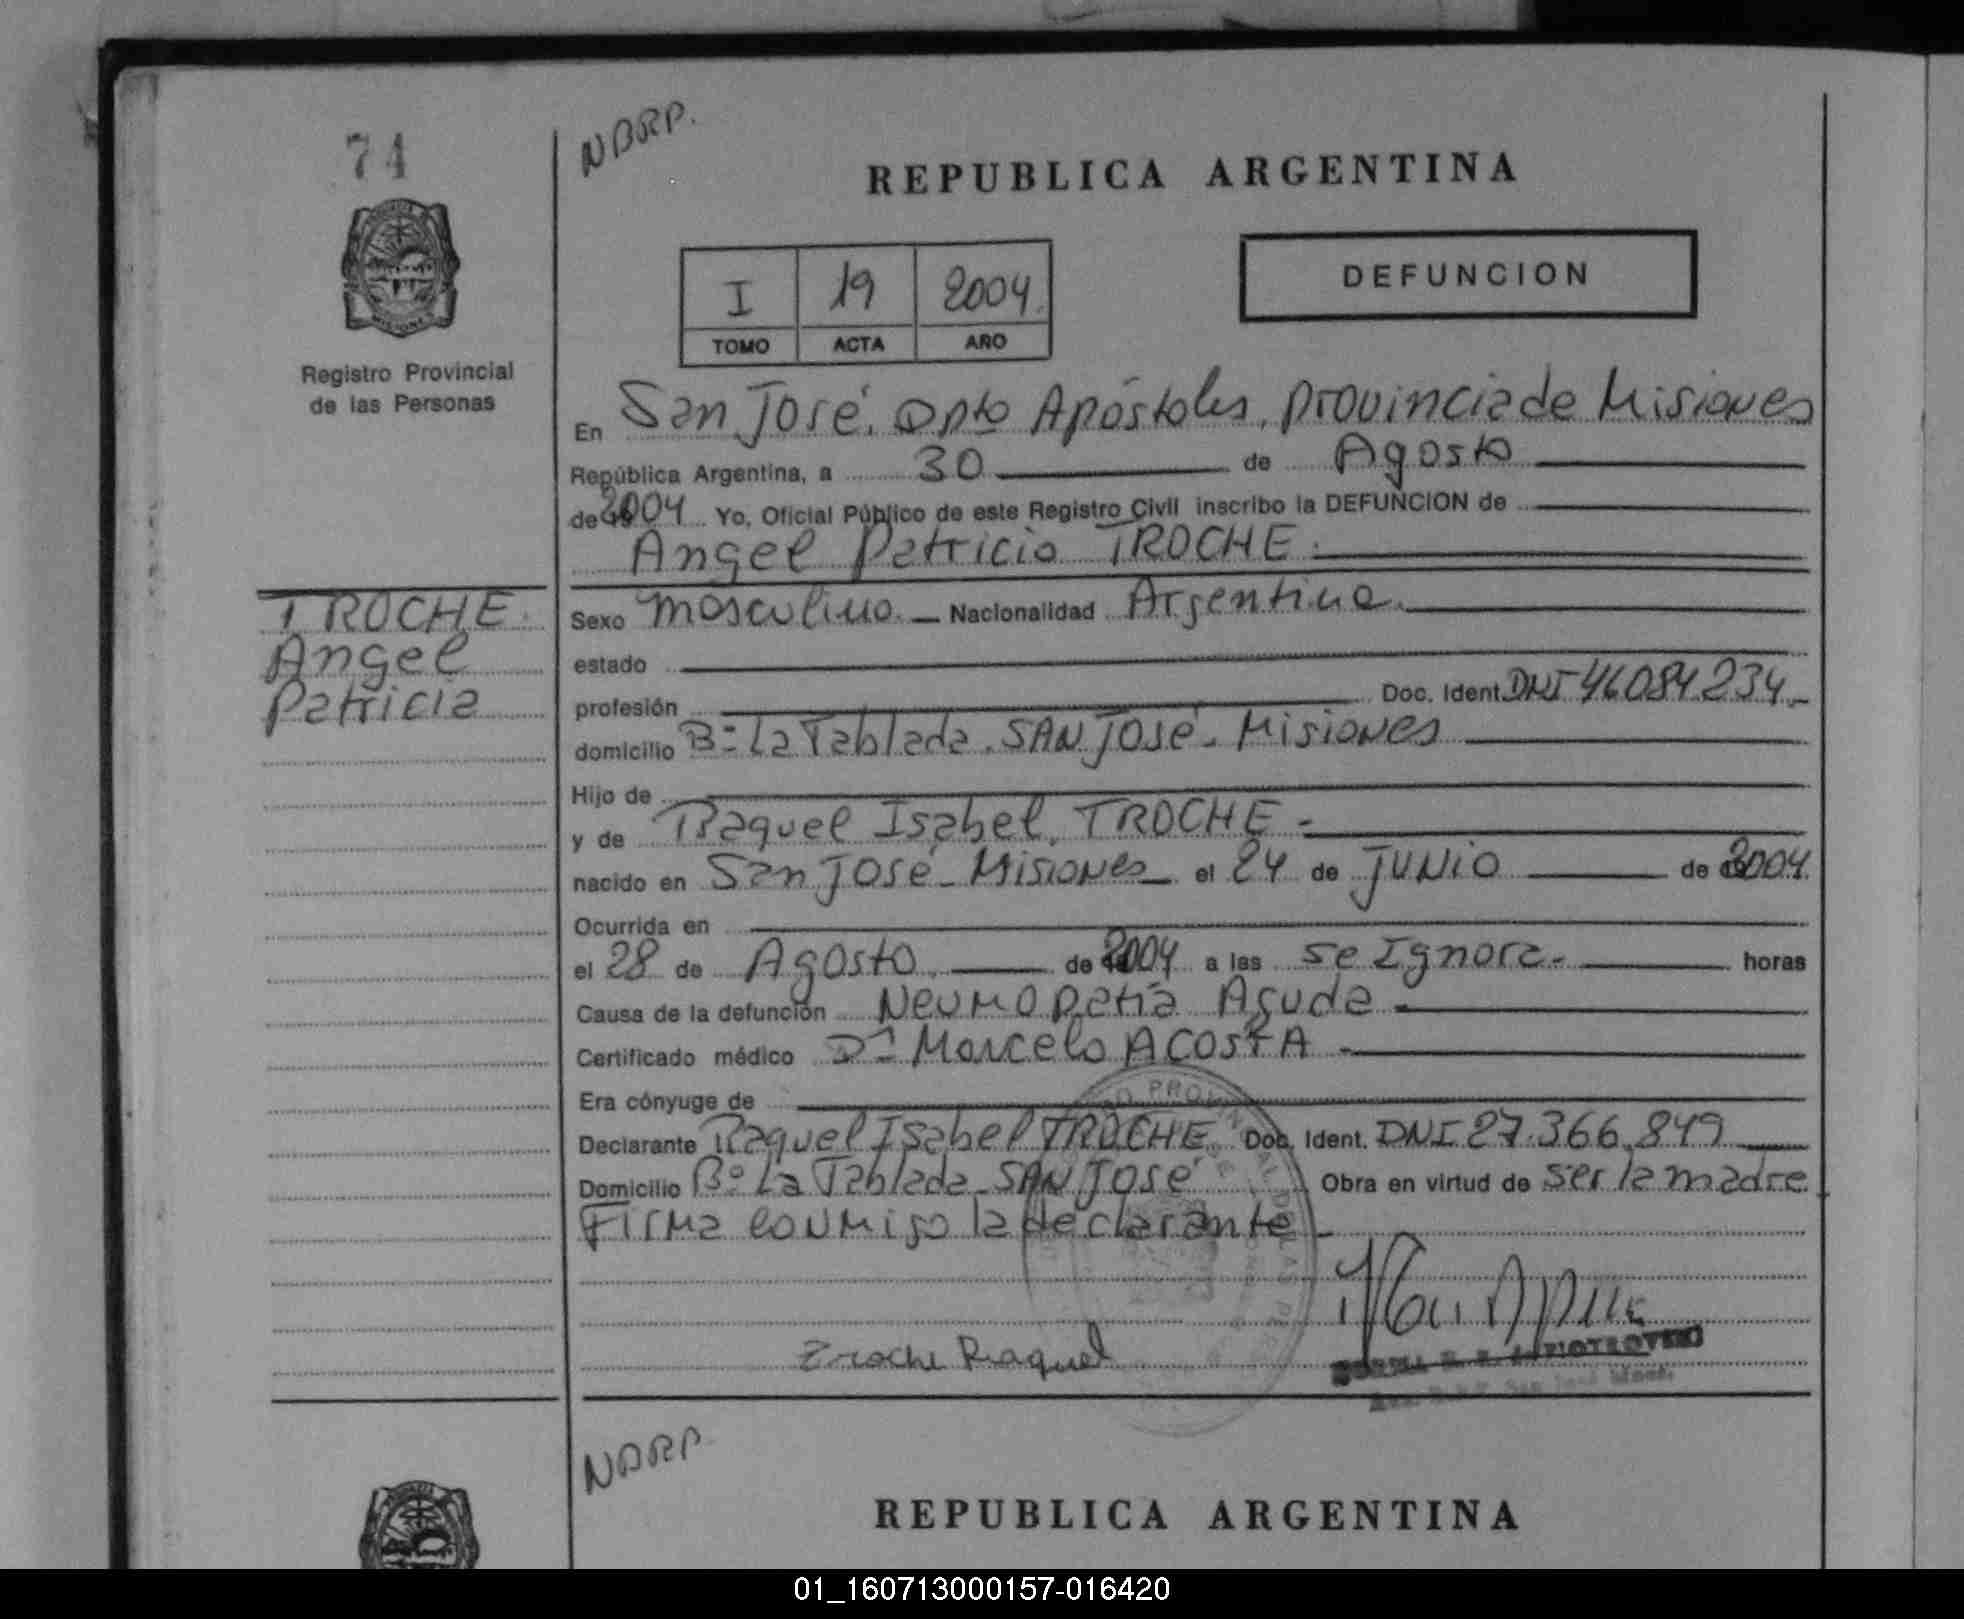 74
NBRP.
REPUBLICA ARGENTINA
I 19 2004.
TOMO ACTA AÑO
DEFUNCION
MISIONES
Registro Provincial
de las Personas
En San José. Dpto Apóstoles, provincia de Misiones
República Argentina, a 30 de Agosto
de 2004 Yo, Oficial Público de este Registro Civil inscribo la DEFUNCION de
Angel Patricio TROCHE.
TROCHE.
Angel
Patricia
Sexo masculino. Nacionalidad Argentina.
estado
profesión Doc. Ident. DNI 46084234.-
domicilio Bº La Tablada. SAN José. Misiones
Hijo de
y de Raquel Isabel, TROCHE -
nacido en San José - Misiones el 24 de JUNIO de 2004.
Ocurrida en
el 28 de Agosto. de 2004 a las se Ignora. horas
Causa de la defunción Neumopatía Aguda
Certificado médico Dr Marcelo ACOSTA
Era cónyuge de
Declarante Raquel Isabel TROCHE Doc. Ident. DNI 27.366.849
Domicilio Bº La Tablada. SAN José Obra en virtud de ser la madre
Firma conmigo la declarante
Troche Raquel
NBRP
REPUBLICA ARGENTINA
01_160713000157-016420